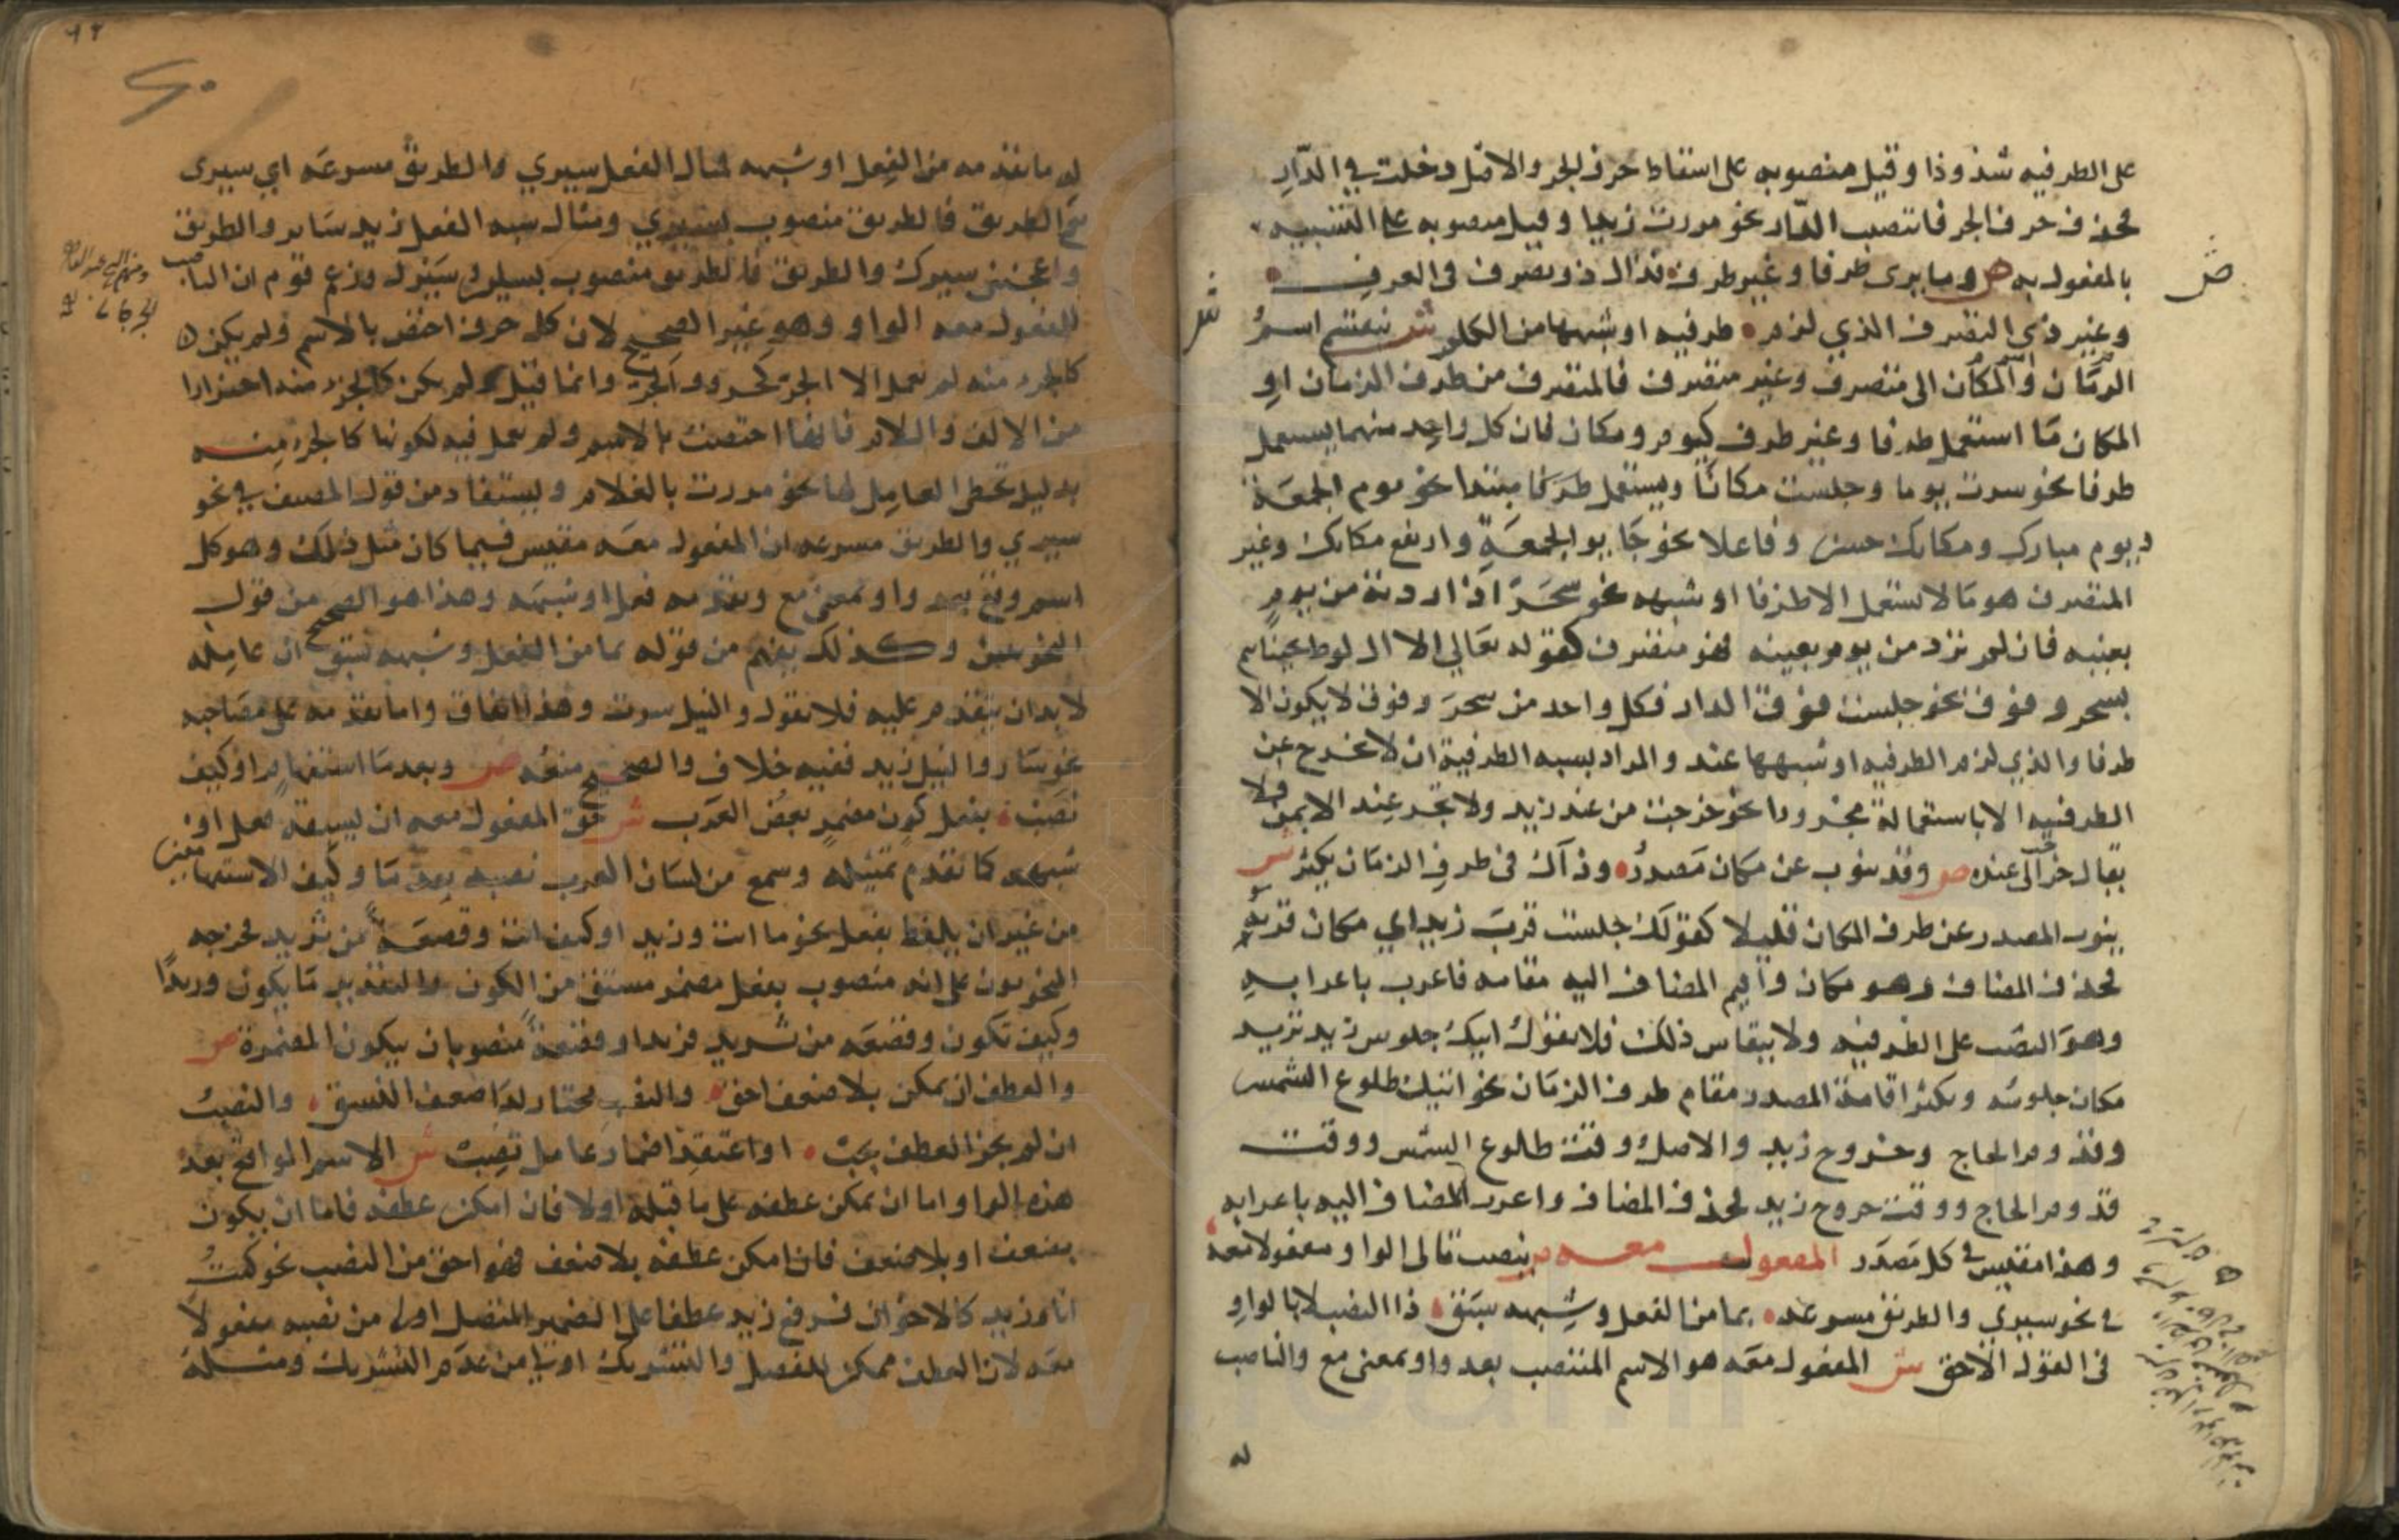 على الظرفيه شذوذا وقيل منصوبه على اسقاط حرف الجر والاصل دخلت في الدار
فحذف حرف الجر فانتصب الدار نحو مررت زيدا وقيل منصوبه على التشبيه
بالمفعول به ص وما يرى ظرفا وغير ظرف فذاك ذو تصرف فى العرف
ص
وغير ذي التصرف الذي لزم ظرفيه او شبهها من الكلم ش ينقسم اسم
ش
الزمان واسم المكان الى متصرف وغير متصرف فالمتصرف من ظرف الزمان او
المكان ما استعمل ظرفا وغير ظرف كيوم ومكان فان كل واحد منهما يستعمل
ظرفا نحو سرت يوما وجلست مكانا ويستعمل مبتدا نحو يوم الجمعة
يوم مبارك ومكانك حسن وفاعلا نحو جا يوم الجمعة وارتفع مكانك وغير
المتصرف هو ما لا يستعمل الا ظرفا او شبهه نحو سحر اذا اردته من يوم
بعينه فان لم ترد من يوم بعينه فهو متصرف كقوله تعالى الا ال لوط نجيناهم
بسحر وفوق نحو جلست فوق الدار فكل واحد من سحر وفوق لا يكون الا
ظرفا والذي لزم الظرفيه او شبهها عند والمراد بشبه الظرفية ان لا يخرج عن
الظرفيه الا باستعماله مجرورا نحو خرجت من عند زيد ولا تجر عند الا بمن فلا
يقال خرجت الى عنده ص وقد ينوب عن مكان مصدر وذاك فى ظرف الزمان يكثر ش
ينوب المصدر عن ظرف المكان قليلا كقولك جلست قرب زيد اي مكان قربه
فحذف المضاف وهو مكان واقيم المضاف اليه مقامه فاعرب باعرابه
وهو النصب على الظرفيه ولا ينقاس ذلك فلا تقول اتيك جلوس زيد تريد
مكان جلوسه ويكثر اقامة المصدر مقام ظرف الزمان نحو اتيك طلوع الشمس
وقدوم الحاج وخروج زيد والاصل وقت طلوع الشمس ووقت
قدوم الحاج ووقت خروج زيد فحذف المضاف واعرب المضاف اليه باعرابه
وهذا مقيس في كل مصدر المفعول معه ص ينصب تالى الواو مفعولا معه
في نحو سيري والطريق مسرعه بما من الفعل وشبهه سبق ذا النصب لا بالواو
فى القول الاحق ش المفعول معه هو الاسم المنتصب بعد واو بمعنى مع والناصب
له
له ما تقدمه من الفعل او شبهه فمثال الفعل سيري والطريق مسرعه اي سيري
مع الطريق فالطريق منصوب بسيري ومثال شبه الفعل زيد ساير والطريق
واعجبنى سيرك والطريق فالطريق منصوب بساير وسيرك وزعم قوم ان الناصب
للمفعول معه الواو وهو غير الصحيح لان كل حرف اختص بالاسم ولم يكن
كالجزء منه لم يعمل الا الجر كحروف الجر وانما قيل ولم يكن كالجزء منه احترازا
من الالف واللام فانها اختصت بالاسم ولم تعمل فيه لكونها كالجزء منه
بدليل تخطى العامل لها نحو مررت بالغلام ويستفاد من قول المصنف في نحو
سيري والطريق مسرعه ان المفعول معه مقيس فيما كان مثل ذلك وهو كل
اسم وقع بعد واو بمعنى مع وتقدمه فعل او شبهه وهذا هو الصحيح من قول
النحويين وكذلك يفهم من قوله بما من الفعل وشبهه سبق ان عامله
لا بد ان يتقدم عليه فلا تقول والنيل سرت وهذا اتفاق واما تقدمه على مصاحبه
نحو سار والنيل زيد ففيه خلاف والصحيح منعه ص وبعد ما استفهام او كيف
نصب بفعل كون مضمر بعض العرب ش حق المفعول معه ان يسبقه فعل او
شبهه كما تقدم تمثيله وسمع من لسان العرب نصبه بعد ما وكيف الاستفهاميتين
من غير ان يلفظ بفعل نحو ما انت وزيدا وكيف انت وقصعة من ثريد فخرجه
النحويون على انه منصوب بفعل مضمر مشتق من الكون والتقدير ما يكون وزيدا
وكيف تكون وقصعه من ثريد فزيدا وقصعة منصوبان بيكون المضمرة ص
والعطف ان يمكن بلا ضعف احق والنصب مختار لدى ضعف النسق والنصب
ان لم يجز العطف يجب او اعتقد اضمار عامل تصب ش الاسم الواقع بعد
هذه الواو اما ان يمكن عطفه على ما قبله اولا فان امكن عطفه فاما ان يكون
بضعف او بلا ضعف فان امكن عطفه بلا ضعف فهو احق من النصب نحو كنت
انا وزيد كالاخوان فرفع زيد عطفا على الضمير المتصل اولى من نصبه مفعولا
معه لان العطف ممكن للفصل والتشريك اولى من عدم التشريك ومثله